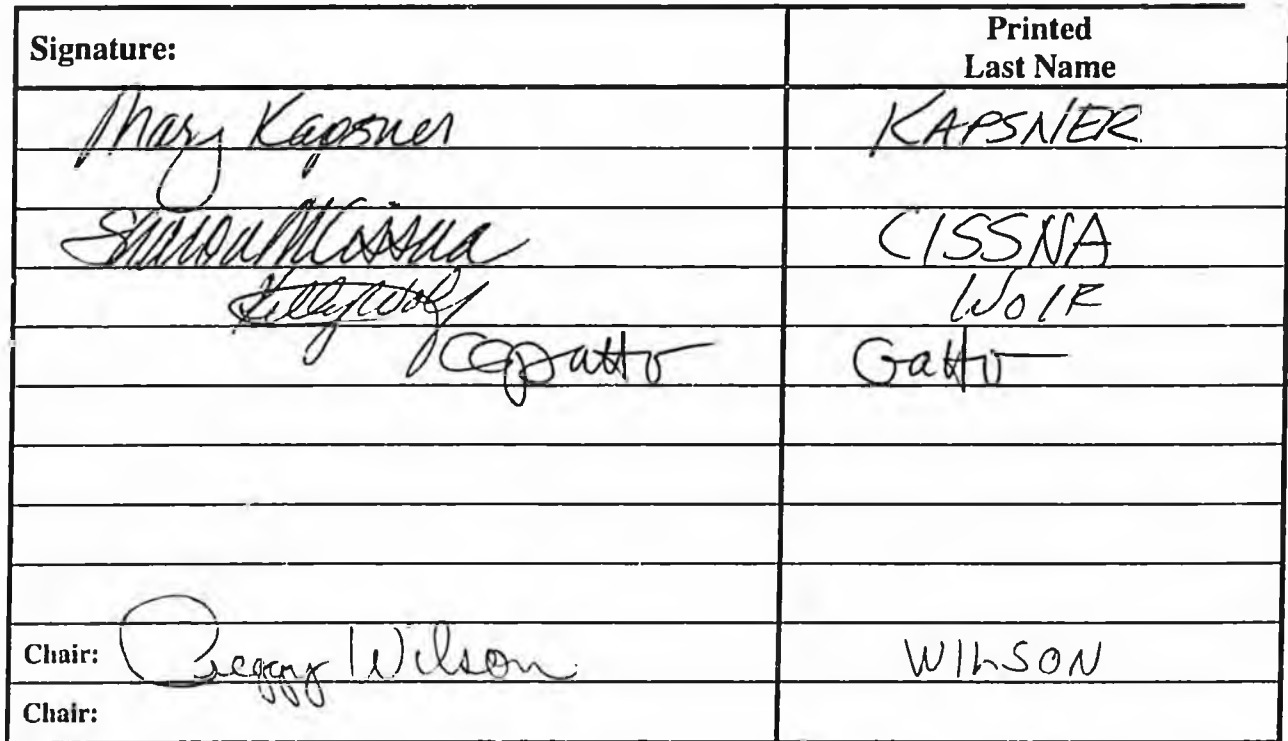 Signature: Printed
Last Name
Mary Kapsner KAPSNER
Sharon M Cissna CISSNA
Kelly Wolf WOLF
Gatto Gatto
Chair: Peggy Wilson WILSON
Chair: